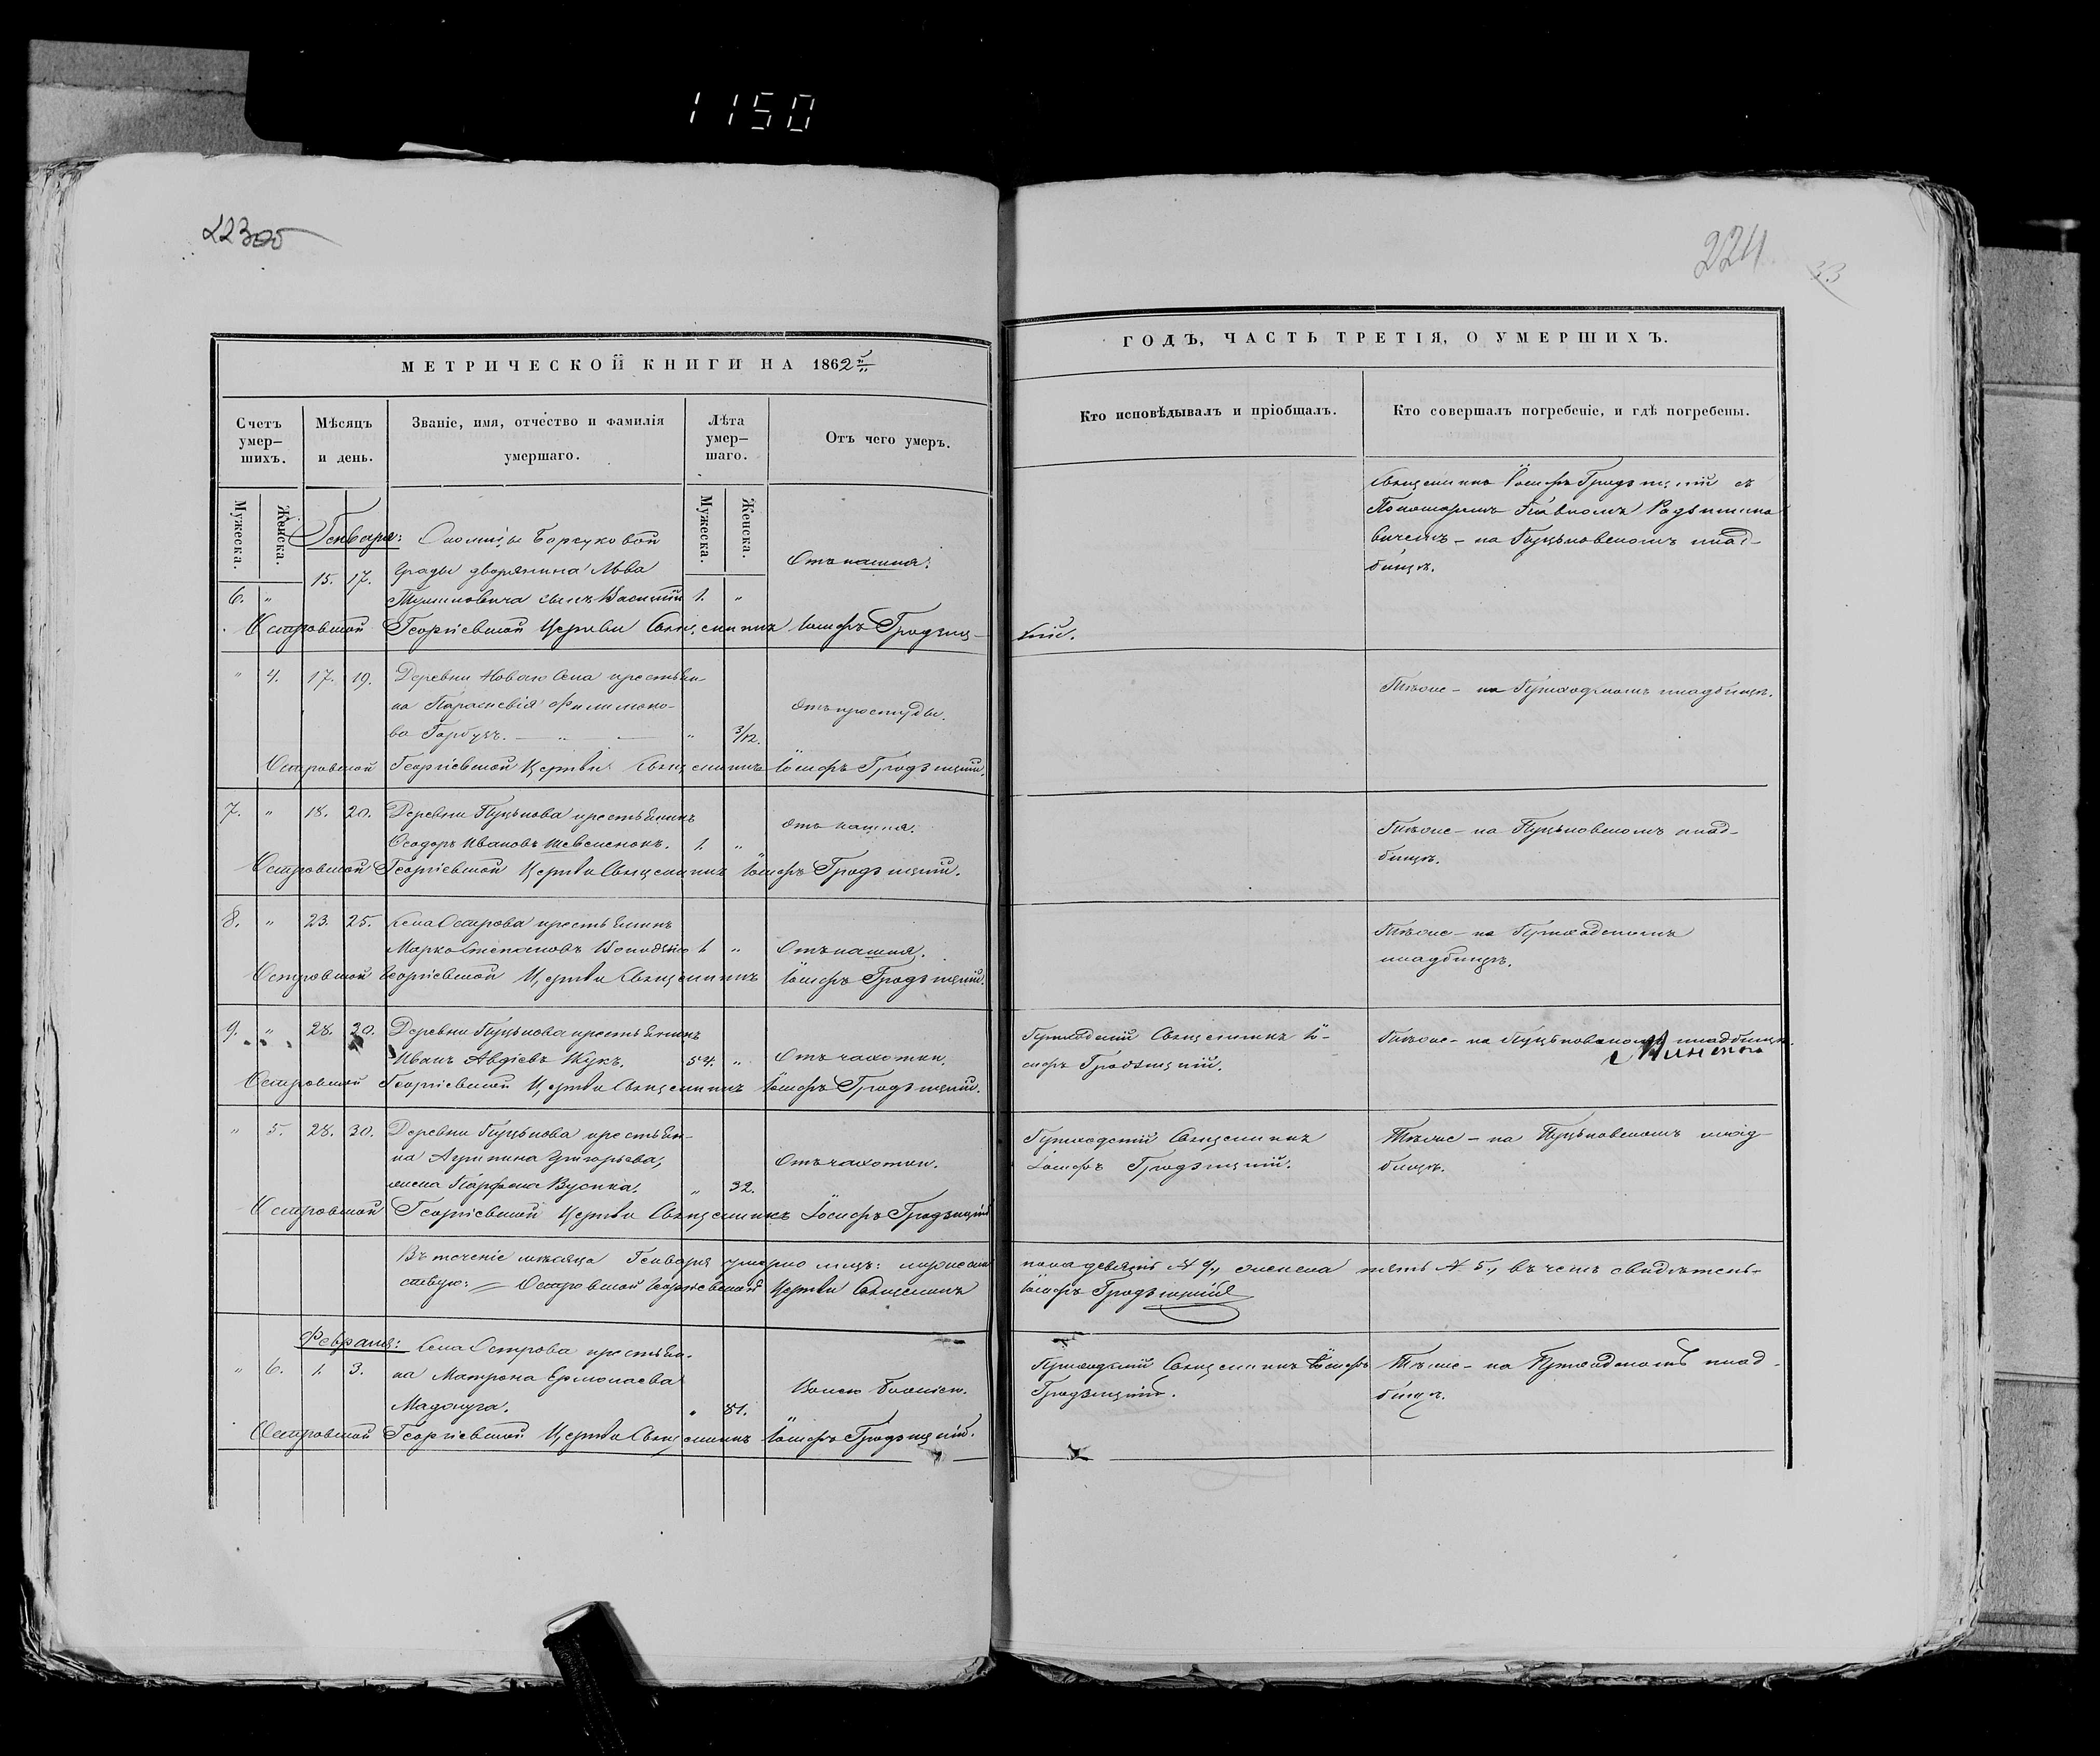 1150
223об
224
33
МЕТРИЧЕСКОЙ КНИГИ НА 1862й
ГОДЪ, ЧАСТЬ ТРЕТІЯ, О УМЕРШИХЪ.
Счетъ умер-шихъ.
Мѣсяцъ и день.
Званіе, имя, отчество и фамилія умершаго.
Лѣта умер-шаго.
Отъ чего умеръ.
Кто исповѣдывалъ и пріобщалъ.
Кто совершалъ погребеніе, и гдѣ погребены.
Мужеска.
Женска.
Мужеска.
Женска.
Генваря:
Околицы Борсуковой
6. " 15. 17. дворянина Льва
сынъ Василій 1. "
Отъ кашля.
Священникъ Іосифъ Гродзицкій съ
Пономаремъ
на Пуцѣковскомъ клад-
бищѣ.
Островской Георгіевской Церкви Священникъ Іосифъ Гродзиц-
кій.
" 4. 17. 19. Деревни Новаго Села крестьян-
ка Параскевія Филимоно-
ва Гарбузъ. " 3/12.
Отъ простуды.
Тѣже - на Приходскомъ кладбищѣ.
Островской Георгіевской Церкви Священникъ Іосифъ Гродзицкій.
7. " 18. 20. Деревни Пуцѣкова крестьянинъ
Ѳеодоръ Ивановъ Шевеленокъ. 1. "
Отъ кашля.
Тѣже - на Пуцѣковскомъ клад-
бищѣ.
Островской Георгіевской Церкви Священникъ Іосифъ Гродзицкій.
8. " 23. 25. Села Острова крестьянинъ
Марко Степановъ 1 "
Отъ кашля.
Тѣже - на Приходскомъ
кладбищѣ.
Островской Георгіевской Церкви Священникъ Іосифъ Гродзицкій.
9. " 28. 30. Деревни Пуцѣкова крестьянинъ
Иванъ Авдіевъ Жукъ. 54. "
Отъ чахотки.
Приходскій Священникъ Іо-
сифъ Гродзицкій.
Тѣже - на Пуцѣковскомъ кладбищѣ.
Островской Георгіевской Церкви Священникъ Іосифъ Гродзицкій.
" 5. 28. 30. Деревни Пуцѣкова крестьян-
ка Агрипина Григорьева,
жена Парфена " 32.
Отъ чахотки.
Приходскій Священникъ
Іосифъ Гродзицкій.
Тѣже - на Пуцѣковскомъ клад-
бищѣ.
Островской Георгіевской Церкви Священникъ Іосифъ Гродзицкій
Въ теченіе мѣсяца Генваря умерло лицъ: мужеска
пола девять № 9., женска пять № 5., въ чемъ свидѣтель-
ствую: Островской Георгіевской Церкви Священникъ
Іосифъ Гродзицкій
Февраля:
Села Острова крестьян-
" 6. 1. 3. ка Матрона Ермолаева
Мадонуга. " 81.
Приходскій Священникъ Іосифъ
Гродзицкій.
Тѣже - на Приходскомъ клад-
бищѣ.
Островской Георгіевской Церкви Священникъ Іосифъ Гродзицкій.